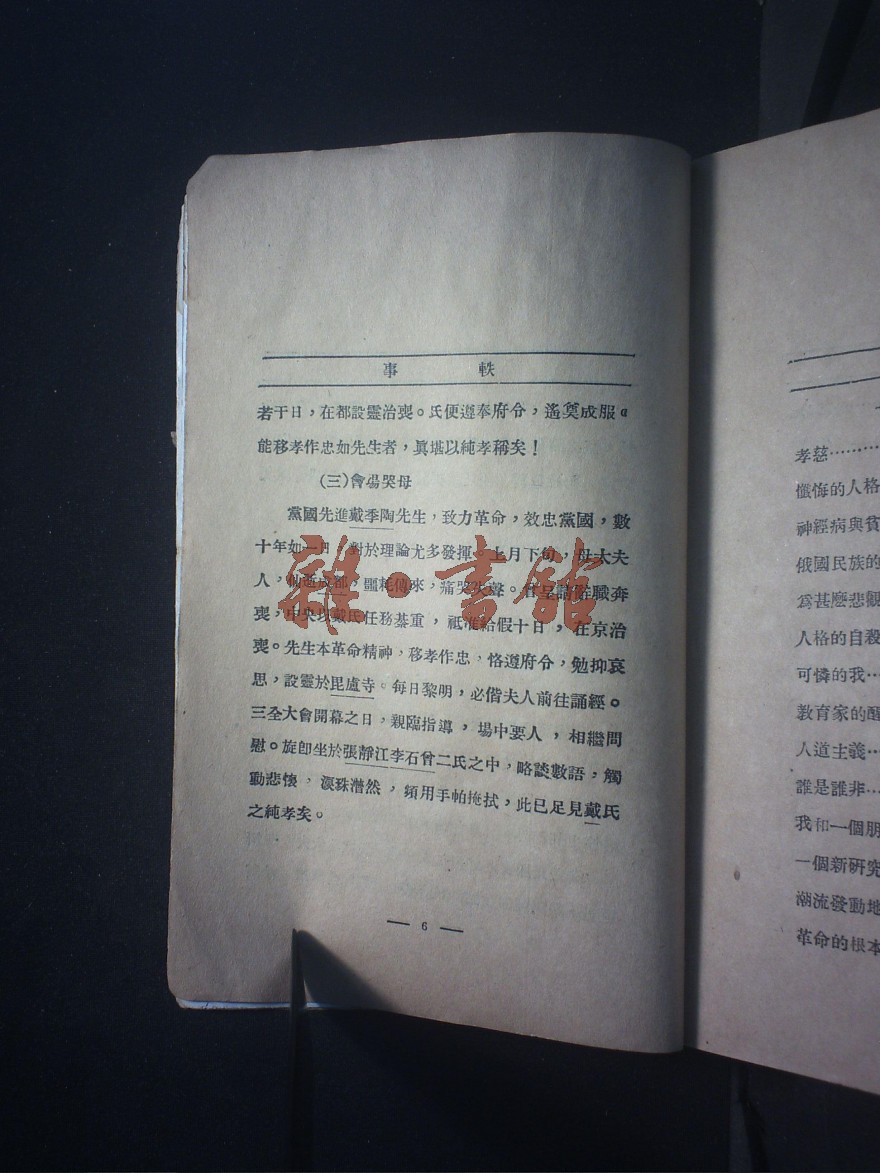 事　　　軼
若干日，在都設靈治喪。氏便遵奉府令，遙奠成服。
能移孝作忠如先生者，眞堪以純孝稱矣！
(三)會塲哭母
黨國先進戴季陶先生，致力革命，效忠黨國，數
十年如一日，對於理論尤多發揮。上月下旬，母太夫
人，仙逝成都，噩耗傳來，痛哭失聲。曾呈請辭職奔
喪，中央以戴氏任務綦重，祇准給假十日，在京治
喪。先生本革命精神，移孝作忠，恪遵府令，勉抑哀
思，設靈於毘盧寺。每日黎明，必偕夫人前往誦經。
三全大會開幕之日，親臨指導，塲中要人，相繼問
慰。旋卽坐於張靜江李石曾二氏之中，略談數語，觸
動悲懷，淚珠潸然，頻用手帕掩拭，此已足見戴氏
之純孝矣。
— 6 —
雜·書館
孝慈………
懺悔的人格
神經病與貧
俄國民族的
爲甚麽悲觀
人格的自殺
可憐的我…
教育家的醒
人道主義…
誰是誰非…
我和一個朋
一個新研究
潮流發動地
革命的根本